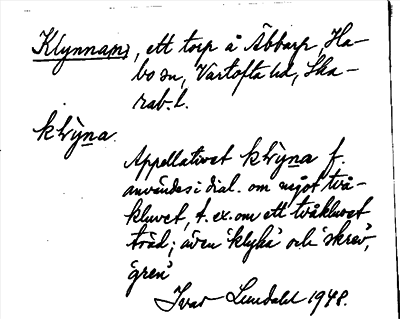 Klynnan, ett torp å Åbbarp, Ha-
bo sn, Vartofta hd, Ska-
rab. l.
klỳna.
Appellativet klỳna f.
användes i dial. om något två-
kluvet, t. ex. om ett tvåkluvet
träd; även 'klyka' och 'skrev',
'gren'
Ivar Lundahl 1948.